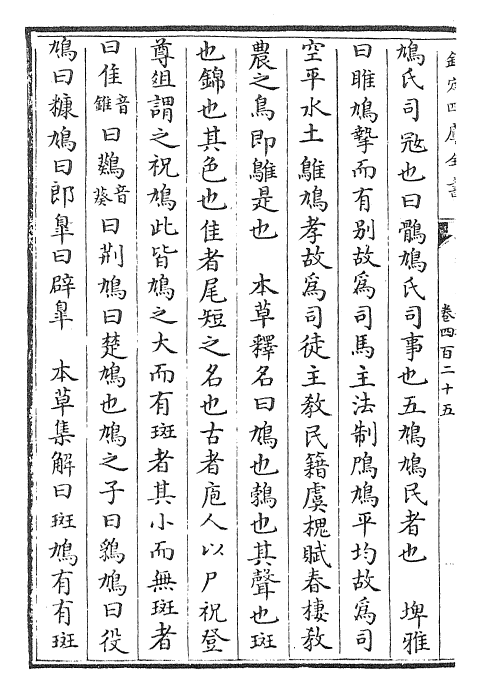 欽定四庫全書
卷四百二十五
鳩氏司冦也曰鶻鳩氏司事也五鳩鳩民者也　埤雅
曰雎鳩摯而有别故爲司馬主法制鳲鳩平均故爲司
空平水土鵻鳩孝故爲司徒主敎民籍虞槐賦春棲敎
農之鳥即鵻是也　本草釋名曰鳩也鷯也其聲也斑
也錦也其色也隹者尾短之名也古者庖人以尸祝登
尊俎謂之祝鳩此皆鳩之大而有斑者其小而無斑者
曰隹音錐曰鷚音葵曰荆鳩曰楚鳩也鳩之子曰鷚鳩曰役
鳩曰糠鳩曰郎臯曰辟臯　本草集解曰斑鳩有有斑